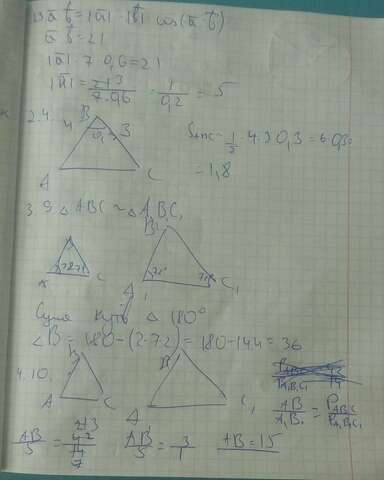 a⃗ b⃗ = |a⃗| · |b⃗| cos(a⃗ b⃗)
a⃗ b⃗ = 21
|a⃗| · 7 · 0,6 = 21
|a⃗| = 21 3 / 7·0,6 = 1 / 0,2 = 5
2.4.
B
4 3
0,3
A C
S ABC = 1/2 · 4 · 3 · 0,3 = 6 · 0,3 =
= 1,8
3. 9 △ ABC ~ △ A₁B₁C₁
B₁
72 72
72° 72°
A C A₁ C₁
Сума кутів △ 180°
∠B = 180 - (2·72) = 180 - 144 = 36
4.10.
B B₁
A C A₁ C₁
AB / A₁B₁ = P ABC / P A₁B₁C₁
AB / 5 = 42 / 14 AB / 5 = 3 / 1 AB = 15